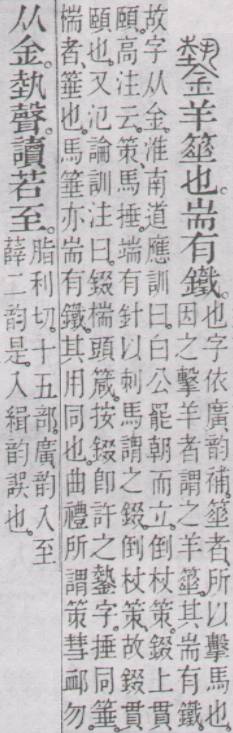 䥍羊箠也。耑有鐵。
也字依廣韵補。箠者、所以擊馬也。
因之擊羊者謂之羊箠。其耑有鐵。
故字从金。淮南道應訓曰。白公罷朝而立。倒杖策。錣上貫
頤。高注云。策、馬捶。端有針以刺馬謂之錣。倒杖策。故錣貫
頤也。又氾論訓注曰。錣、椯頭箴。按錣卽許之䥍字。捶同箠。
椯者、箠也。馬箠亦耑有鐵。其用同也。曲禮所謂策彗卹勿
从金。執聲。讀若至。
脂利切。十五部。廣韵入至
薛二韵是。入緝韵誤也。